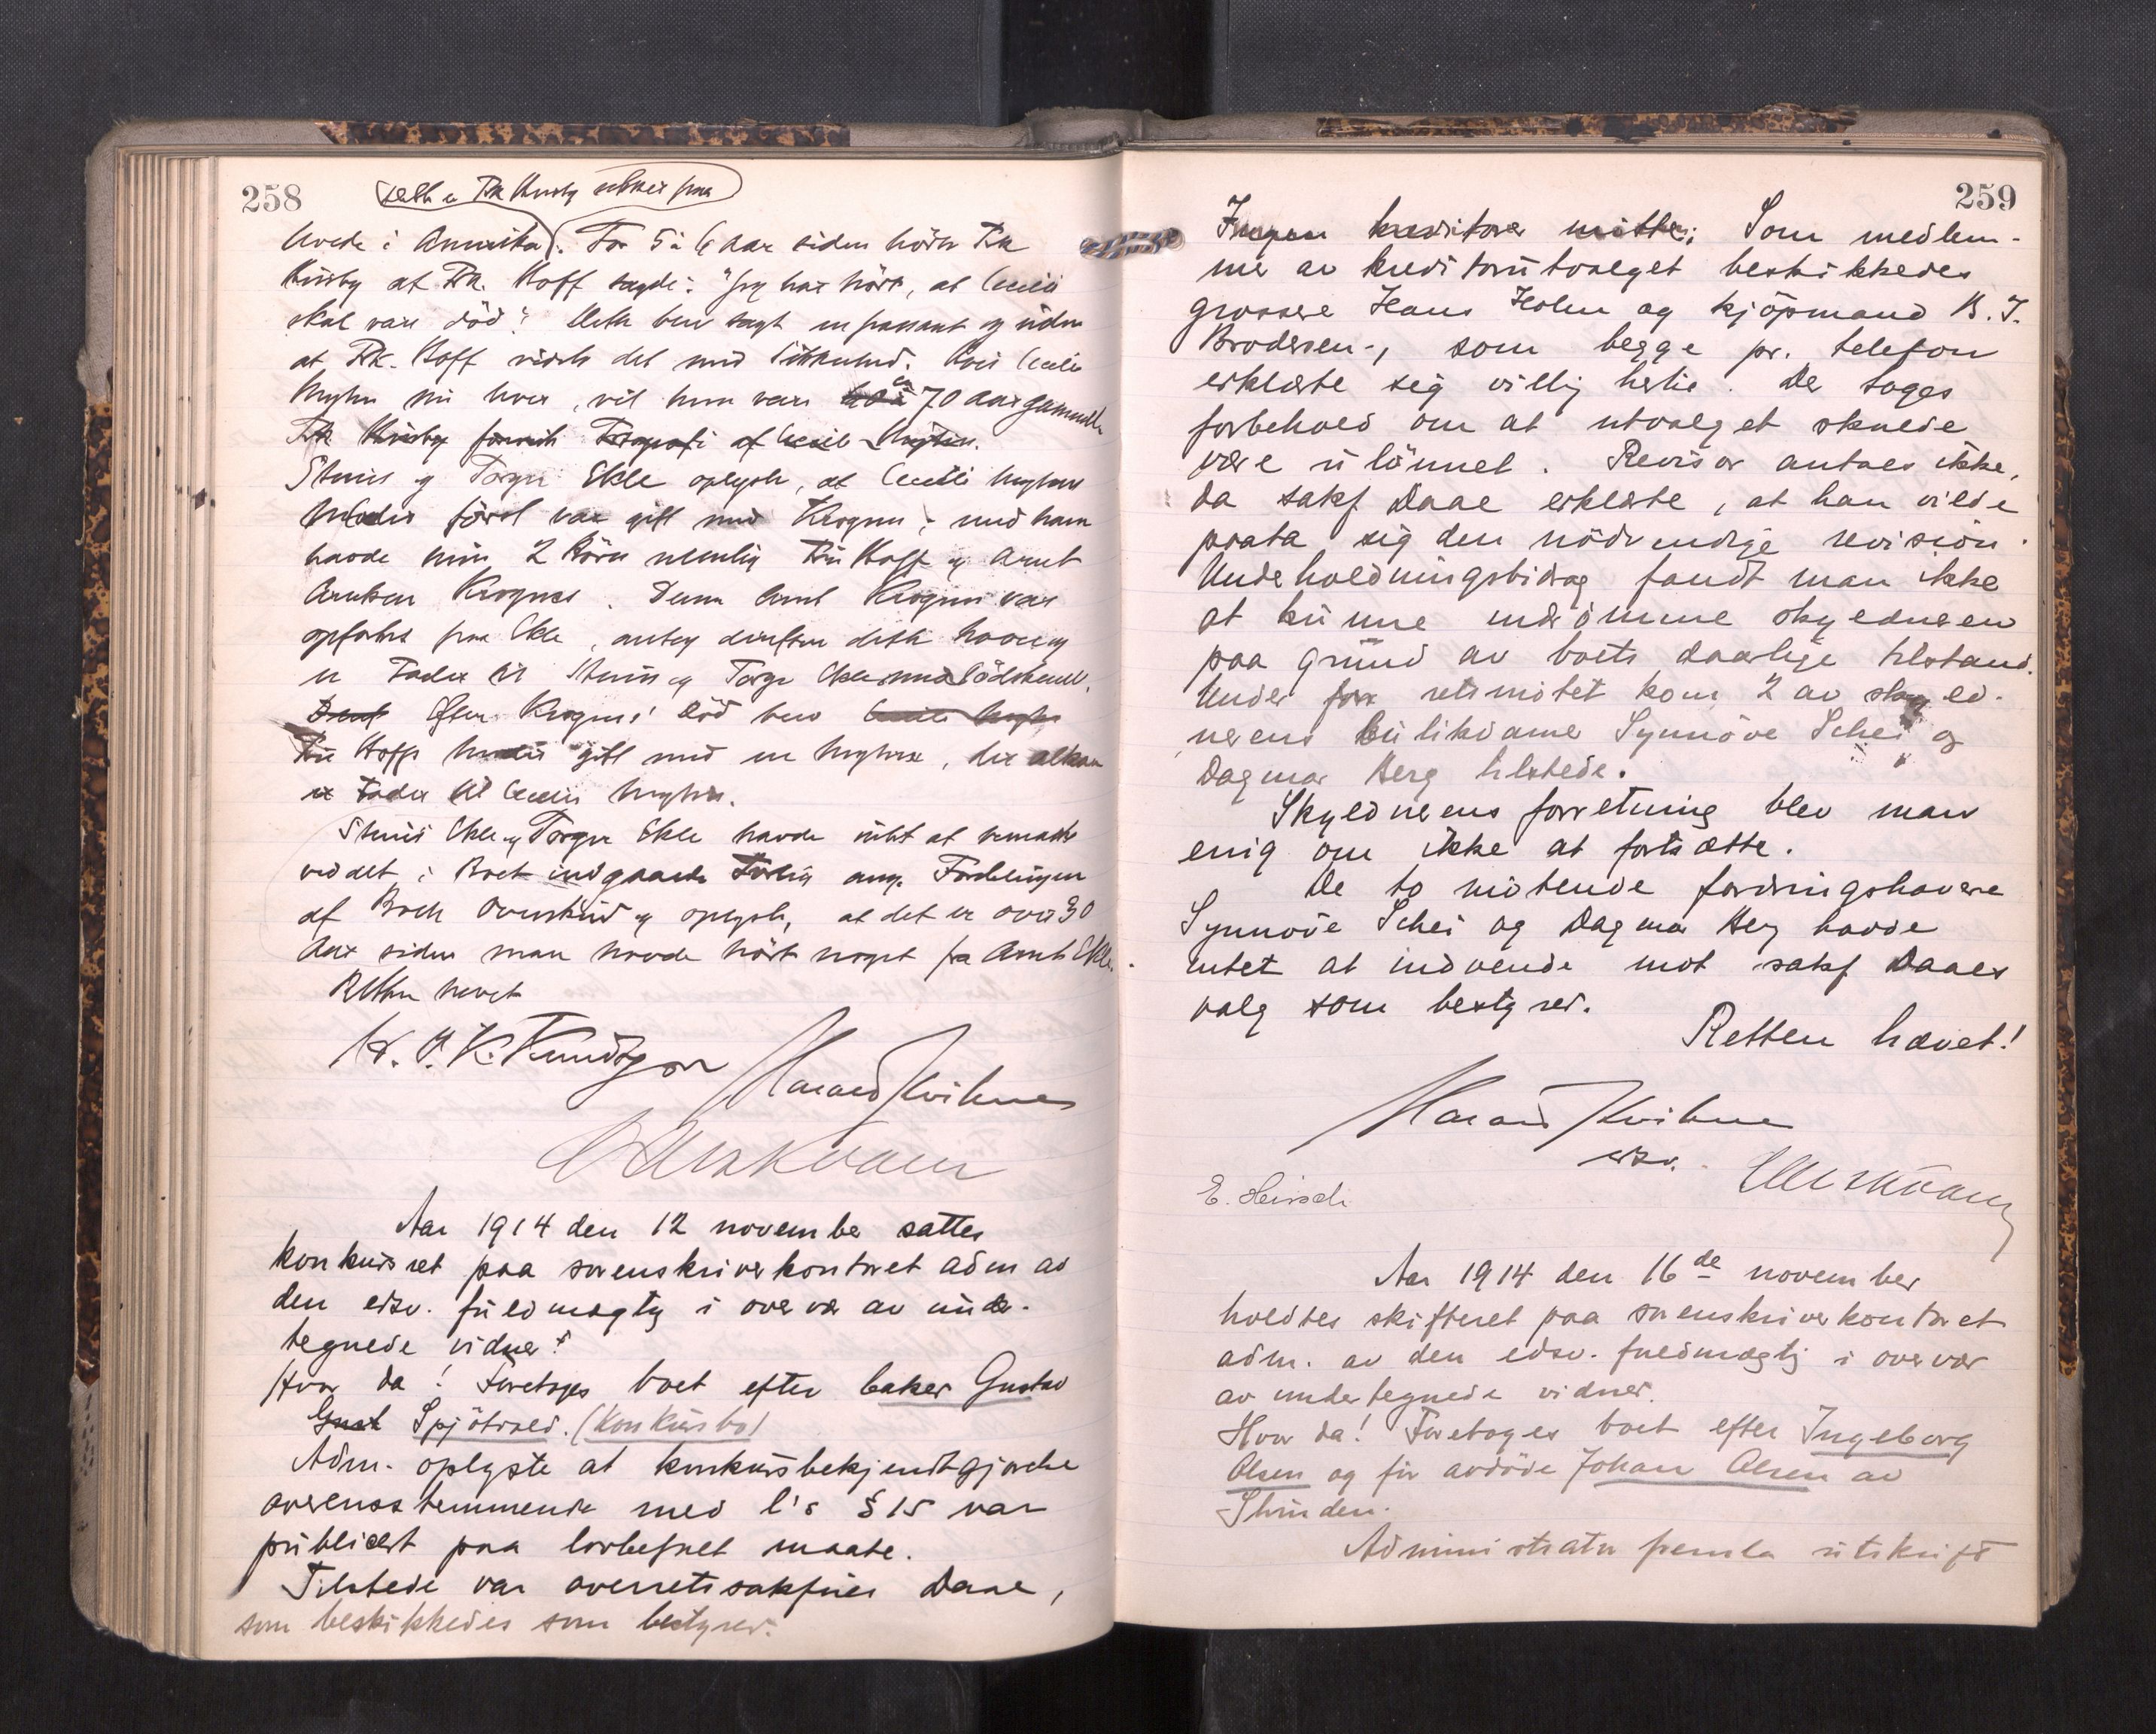 258
Frk Kirsby
havde i Amerika). For 5 à 6 Aar siden hørte Frk
Kirsby at Frk. Hoff sagde: "Jeg har hørt, at Cecilie
skal være død". Dette blev sagt en passant og uden
at Frk. Hoff vidste det med Sikkerhed. Hvis Cecilie
Myhre nu lever, vil hun være ca 70 Aar gammel
Frk Kirsby Fotografi af Cecilie Myhre.
og Torger Ekle oplyste, at Cecilie Myhres
Moder først var gift med Krognes; med ham
havde hun 2 Børn nemlig Hoff og Arnt
Arntsen Krognes. Denne Arnt Krognes var
opfostret paa Ekle, antog derefter dette Navn og
er Fader til og Torger Ekle
Efter Krognes' Død blev Cecilie Myhre
Hoffs Moder gift med en Myhre, der altsaa
er Fader til Cecilie Myhre.
Ekle og Torger Ekle havde intet at bemærke
ved det i Boet indgaaede Forlig ang. Fordelingen
af Boets Overskud og oplyste, at det er over 30
Aar siden man havde hørt noget fra Arnt Ekle.
Retten hævet
Harald Kvihne
Aar 1914 den 12 november sattes
konkursret paa sorenskriverkontoret adm av
den edsv. fuldmægtig i overvær av under-
tegnede vidner:
Hvor da! Foretoges boet efter baker Gustav
Gust Spjøtvold. (Konkursbo)
Adm. oplyste at konkursbekjendtgjørelse
overensstemmende med l's § 15 var
publicert paa lovbefalt maate.
Tilstede var overretssakfører Daae,
som beskikkedes som bestyrer.
259
Ingen kreditorer møtte; Som medlem-
mer av kreditorutvalget beskikkedes
grosserer Hans Holm og kjøpmand B. J.
Brodersen, som begge pr. telefon
erklærte sig villig hertil. Der toges
forbehold om at utvalget skulde
være ulønnet. Revisor antaes ikke,
da sakf Daae erklærte, at han vilde
paata sig den nødvendige revision.
Underholdningsbidrag fandt man ikke
at kunne indrømme skyldneren
paa grund av boets daarlige tilstand.
Under forr retsmøtet kom 2 av skyld-
nerens butikdamer Synnøve Schei og
Dagmar Berg tilstede.
Skyldnerens forretning blev man
enig om ikke at fortsætte.
De to møtende fordringshavere
Synnøve Schei og Dagmar Berg havde
intet at indvende mot sakf Daaes
valg som bestyrer.
Retten hævet!
Harald Kvihne
edsv.
E. Hirsch
Aar 1914 den 16de november
holdtes skifteret paa sorenskriverkontoret
adm. av den edsv. fuldmægtig i overvær
av undertegnede vidner.
Hvor da! Foretoges boet efter Ingeborg
Olsen og før avdøde Johan Olsen av
Strinden.
Administrator fremla utskrift